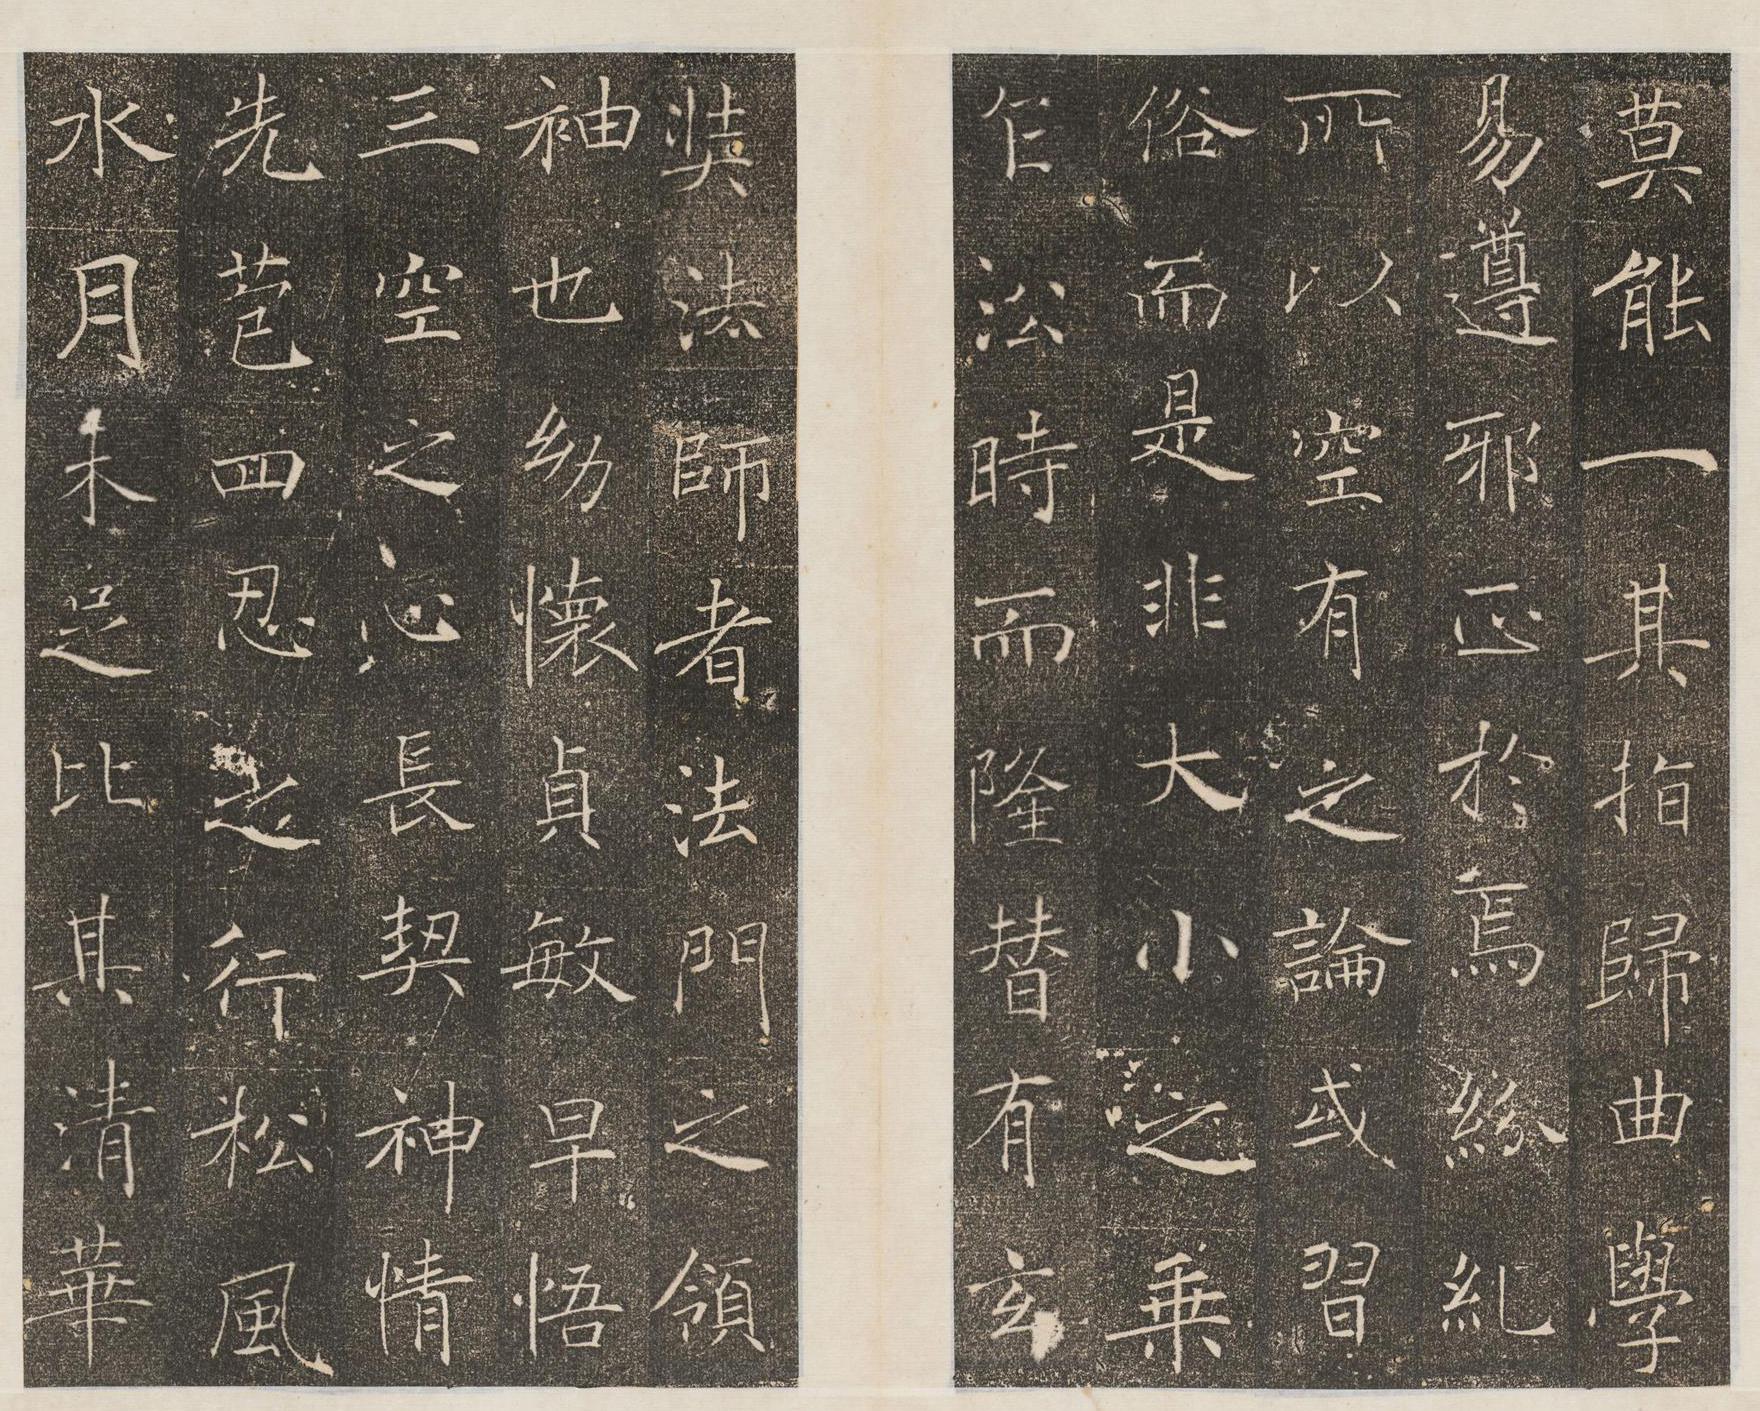 莫能一其指歸曲學
易遵邪正於焉紛糺
所以空有之論或習
俗而是非大小之乗
乍㳂時而隆替有玄
奘法師者法門之領
袖也幼懷貞敏早悟
三空之心長契神情
先苞四忍之行松風
水月未足比其清華